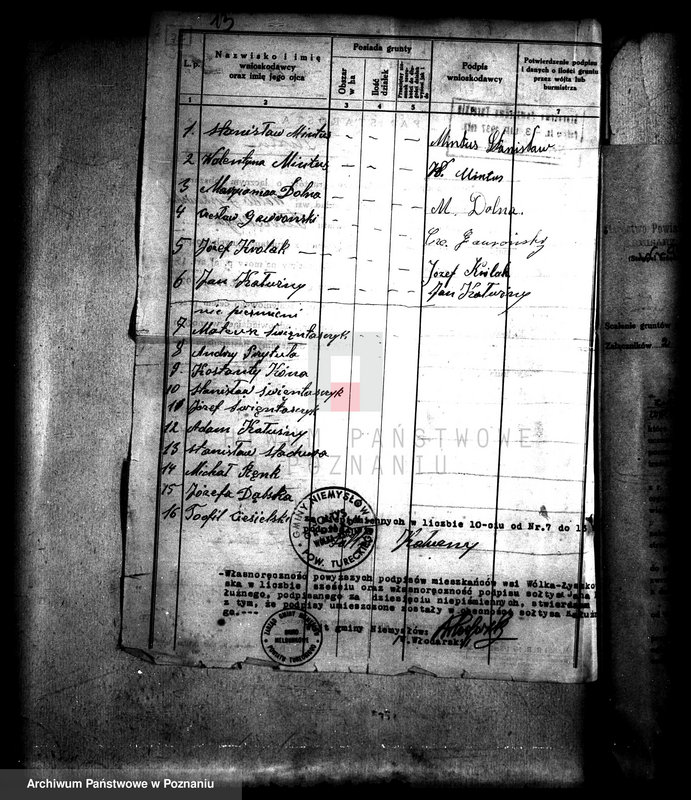 13
L. p.
Nazwisko i imię
wnioskodawcy
oraz imię jego ojca
Posiada grunty
Obszar w ha
Ilość działek
Podpis
wnioskodawcy
Potwierdzenie podpisu
i danych o ilości gruntu
przez wójta lub
burmistrza
1 2 3 4 5 6 7
1. Stanisław Mintus — — — Mintus Stanisław
2 Walentyna Mintus — — — W. Mintus
3 Dolna — — — M. Dolna.
4 Czesław Gawroński — — — Cze. Gawroński
5 Józef Królak — — — — Józef Królak
6 Jan Kałużny — — — Jan Kałużny
nie piśmieni
7 Mateusz Świętaszczyk
8 Andrzej Przybyła
9 Konstanty Kóna
10 Stanisław Świętaszczyk
11 Józef Świętaszczyk
12 Adam Kałużny
13 Stanisław Stachura
14 Michał Kenk
15 Józefa Dąbska
16 Teofil Cesielski
w liczbie 10-ciu od Nr.7 do 16
GMINY NIEMYSŁÓW
POW. TURECKIEGO
Kałużny
-Własnoręczność powyższych podpisów mieszkańców wsi Wólka-
ska w liczbie sześciu oraz własnoręczność podpisu sołtysa Jana
łużnego, podpisanego za dziesięciu niepiśmiennych, stwierdzam
z tym, że podpisy umieszczone zostały w obecności sołtysa
go.---
gminy Niemysłów:
Włodarski
BIURO
MELDUNKOWE
Scalenie gruntów
Załączników 2
ARCHIWUM PAŃSTWOWE
W POZNANIU
Archiwum Państwowe w Poznaniu